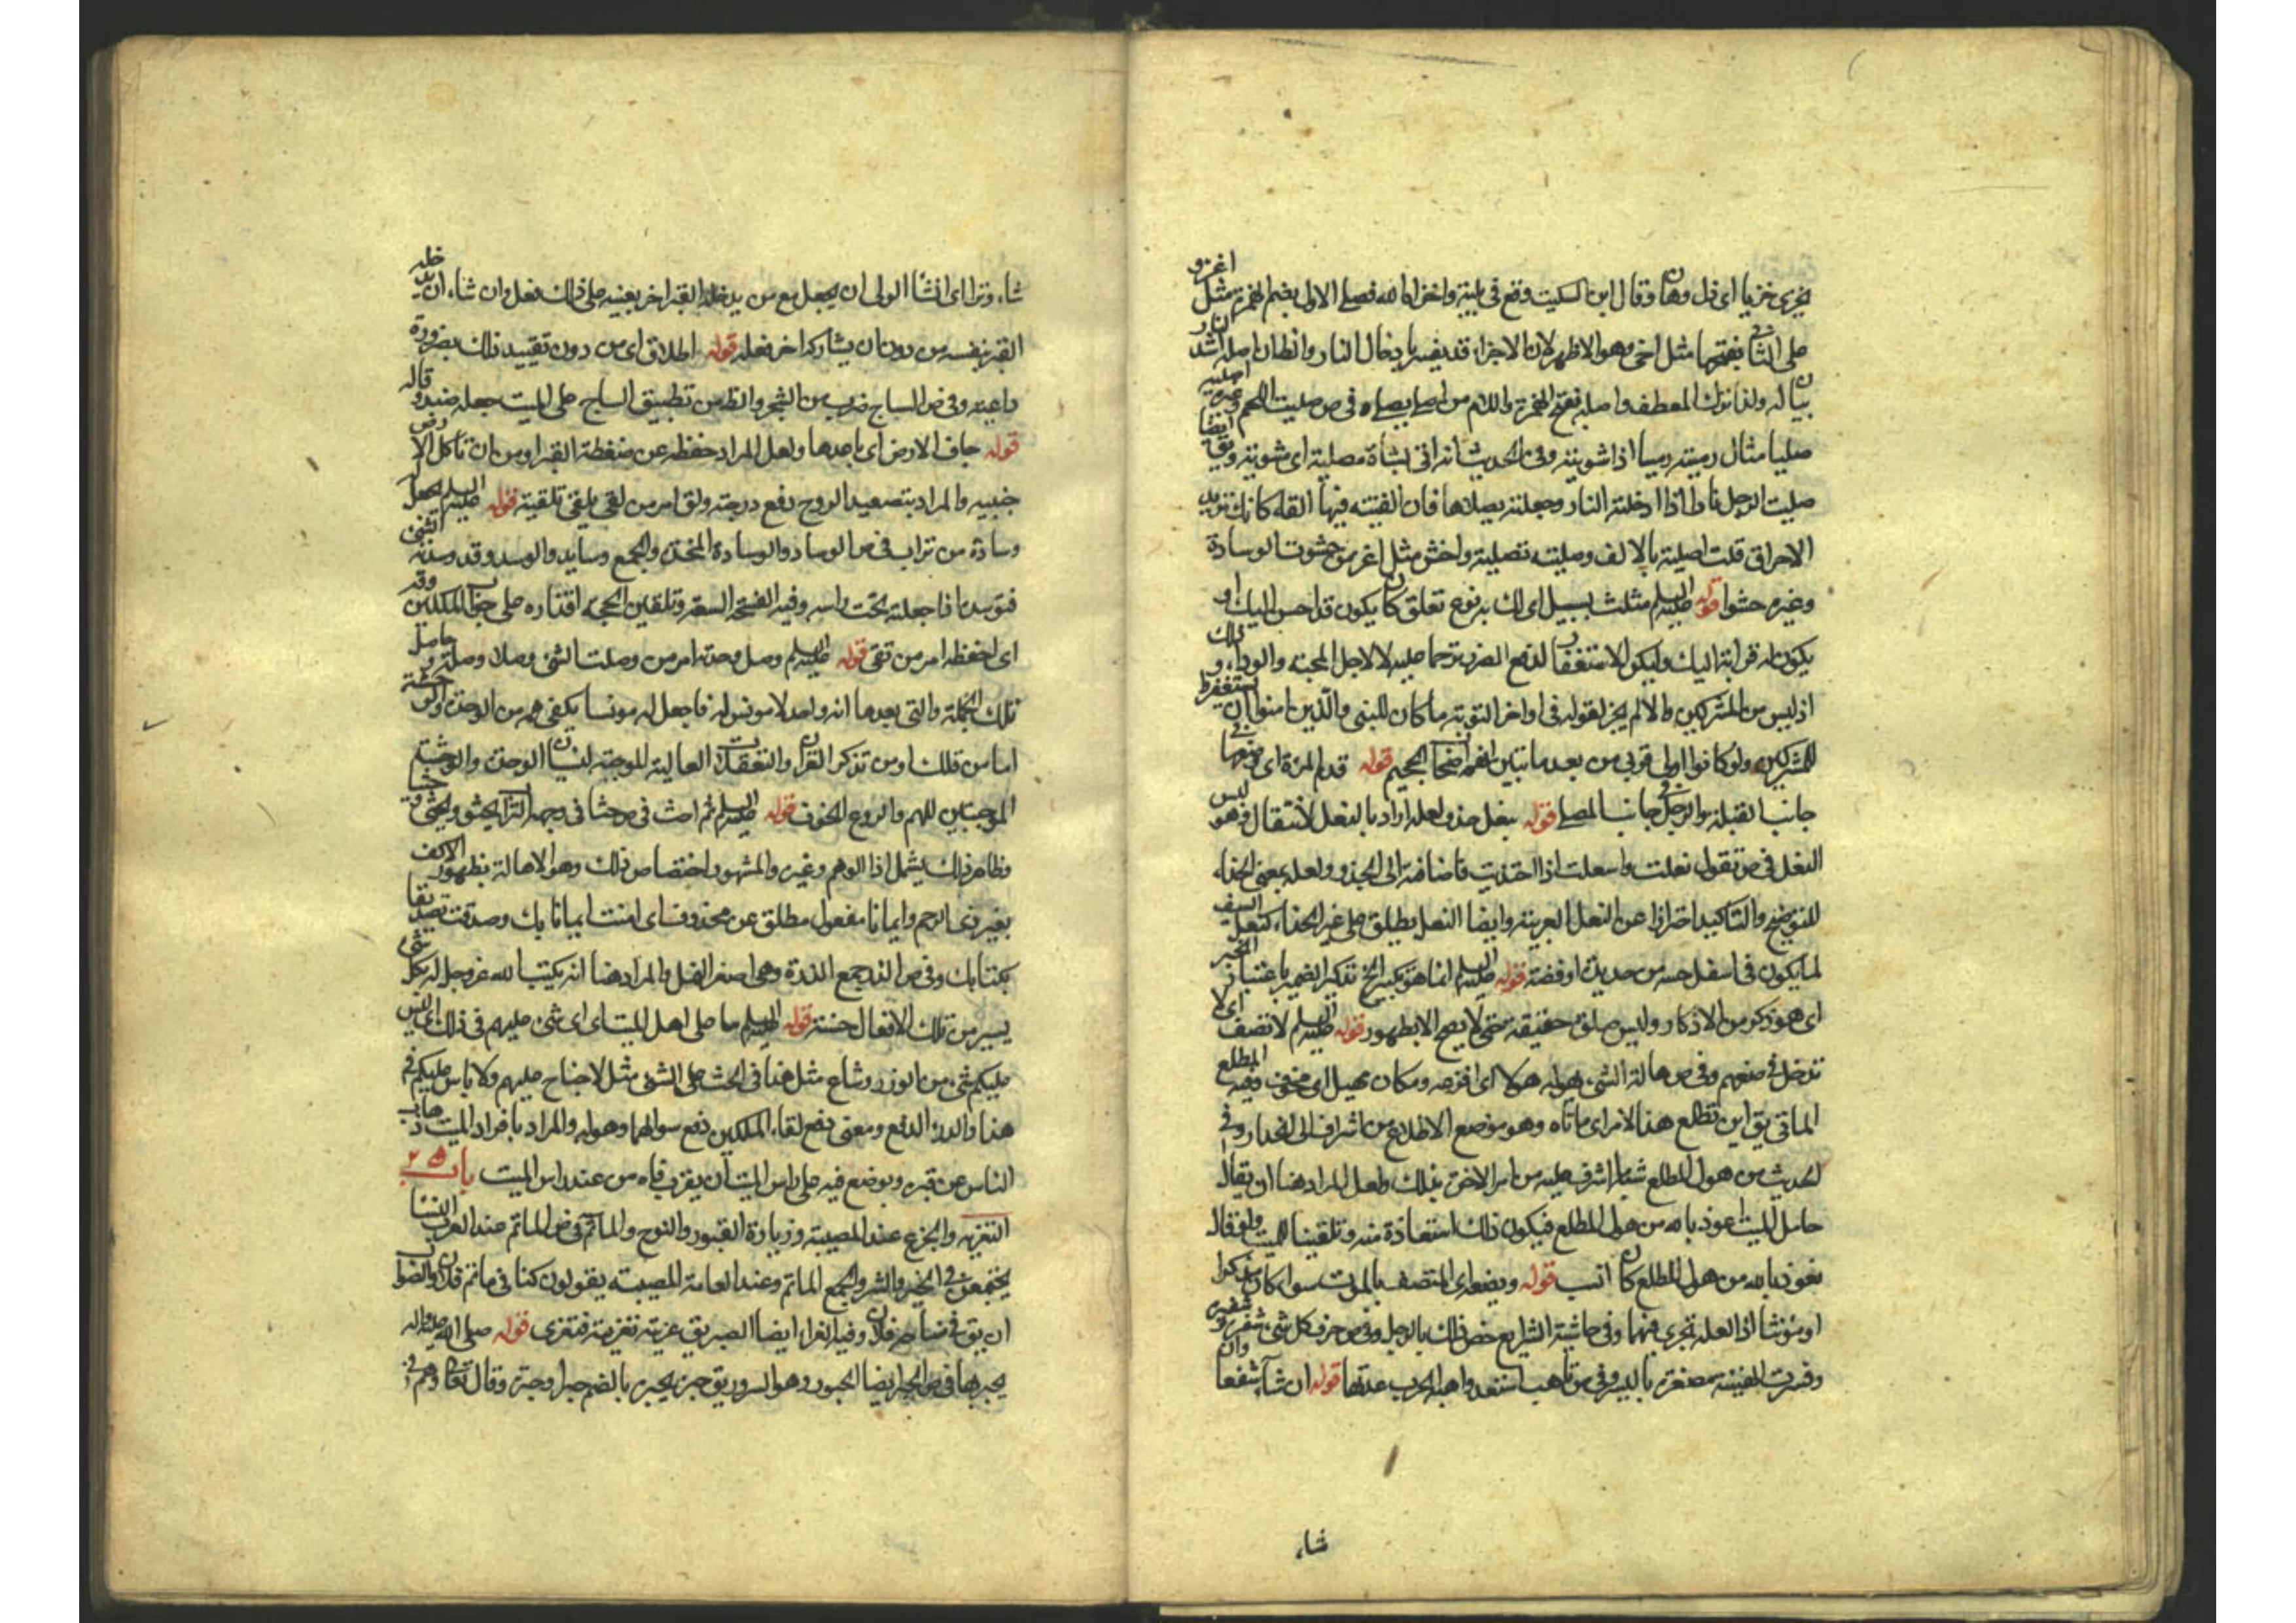 يخزى خزيا اى ذل وهان وقال ابن السكيت وقع فى بلية واخزاه الله فعلى الاول بضم الهمزة مثل اغزو
على الثانى بفتحها مثل اخى وهو الاظهر لان الاجزاء قد يفسر بادخال النار وان كان اصله اشد
بيانا له ولذا ترك العطف واصله بفتح الهمزة واللام من اصلى يصلى وفى ص صليت اللحم وغيره اصليه
صليا مثال رميته رميا اذا شويته وفى الحديث انه اتى بشاة مصلية اى مشوية ويق ايضا
صليت الرجل نارا اذا ادخلته النار وجعلته يصلاها فان القيته فيها القاء كانك تريد
الاحراق قلت اصليته بالالف وصليته تصلية واخش مثل اغز من حشوت الوسادة
وغيره حشوا قوله عليه السلم مثلث بسبيل اى لك به نوع تعلق كان يكون قد احسن اليك او
يكون له قرابة اليك وليكون الاستغفار لدفع الضرر ترحما عليه لا لاجل المحبة والوداد و
اذ ليس من المشركين والا لم يجز لقوله فى اواخر التوبة ما كان للنبى والذين امنوا ان يستغفروا
للمشركين ولو كانوا اولى قربى من بعد ما تبين انهم اصحاب الجحيم قوله قدم المرة اى ضعها فى
جانب القبلة والرجل فى جانب المصلى قوله بنعل حذو لعله اراد بالنعل لانتقال فهو ليس
النعل فى ص تقول نعلت وانتعلت اذا احتذيت فاضافته الى الحذو ولعله بمعنى الحذاء
للتوضيح والتاكيد احترازا عن النعل العربية وايضا النعل يطلق على غير الحذاء كنعل السيف
لما يكون فى اسفل جفنه من حديد او فضة قوله عليه السلم انما هو تكبير الخ تذكير الضمير باعتبار الخبر
اى هو ذكر من الاذكار وليس صلوة حقيقة حتى لا يصح الا بطهور قوله عليه السلم لا تصف اى لا
تدخل فى صفهم وفى ص هاله الشىء يهوله هولا اى افزعه ومكان مهيل اى مخوف وفيه المطلع
الماتى يق اين مطلع هذا الامر اى ماتاه وهو موضع الاطلاع من اشراف الى انحدار وفى
الحديث من هول المطلع شبه ما اشرف عليه من امر الاخرة بذلك ولعل المراد هنا ان يقال
حامل الميت اعوذ بالله من هول المطلع فيكون ذلك استعاذة منه وتلقينا للميت ولو قال
نعوذ بالله من هول المطلع كان انسب قوله ويضع اى المتصف بالموت سواء كان مذكرا
او مؤنثا اذ العلة تجرى فيهما وفى حاشية الشرايع خص ذلك بالرجل وفى ص حرف كل شىء شفره وشفيره
وفسرت الهنيئة مصغرة باليسير وفى ص تاهب استعد واهبة الحرب عدتها قوله ان شاء شفعا وان
شاء
شاء وترا اى ان شاء الولى ان يجعل مع من يدخله القبر اخر يعينه على ذلك فعل وان شاء ان يدخله
القبر بنفسه من دون ان يشاركه اخر فعله قوله اطلاق اى من دون تقييد ذلك بضرورة
داعية وفى ص الساج ضرب من الشجر والظ من تطبيق الساج على الميت جعله صندوقا له
قوله جاف الارض اى باعدها ولعل المراد حفظه عن ضغطة القبر او من ان تاكل الارض
جنبيه والمراد بتصعيد الروح رفع درجته ولق امر من لقى يلقى تلقية قوله عليه السلم يجعل له
وسادة من تراب فى ص الوساد والوسادة المخدة والجمع وسايد والوسد وقد وسدته الشىء
فتوسد اذا جعلته تحت راسه وفيه الفسحة السعة وتلقين الحجة اقتداره على جواب الملكين وقه
اى احفظه امر من تقى قوله عليه السلم وصل وحدته امر من وصلت الشىء وصلا وصلة وحاصل
تلك الجملة والتى بعدها انه واحد لا مونس له فاجعل له مونسا يكفى همه من الوحدة والوحشة
اما من فلك او من تذكر القران والتعقلات العالية الموجبة لنسيان الوحدة والوحشة
الموجبتين للهم والروع الخوف قوله عليه السلم ثم احث فى ص حثا فى وجهه التراب يحثو ويحثى حثيا
وظاهر ذلك يشمل اذا الوهم وغيره والمشهور اختصاص ذلك وهو الاهالة بظهور الاكف
بغير ذى الرحم وايمانا مفعول مطلق عن محذوف اى امنت ايمانا بك وصدقت تصديقا
بكتابك وفى ص الذر جمع الذرة وهى اصغر النمل والمراد هنا انه يكتب الله عز وجل له بكل شىء
يسير من تلك الافعال حسنة قوله عليه السلم ما على اهل الميت اى اى شىء عليهم فى ذلك اى ليس
عليكم شىء من الوزر وشاع مثل هذا فى الحث على الشىء مثل لا جناح عليهم ولا باس عليكم فى
هذا والدرء الدفع ومعنى دفع لقاء الملكين دفع سوالهما وهوله والمراد بافراد الميت ذهاب
الناس عن قبره وبوضع فيه على راس الميت ان يقرب فاه من عند راس الميت باب ٢٥
التعزية والجزع عند المصيبة وزيارة القبور والنوح والماتم فى ص الماتم عند العرب النساء
يجتمعن فى الخير والشر والجمع الماتم وعند العامة المصيبة يقولون كنا فى ماتم فلان والصواب
ان يق فى مناحة فلان وفيه العزاء ايضا الصبر يق عزيته تعزية فتعزى قوله صلى الله عليه واله
يحبر بها فى ص الحبر ايضا الحبور وهو السرور يق حبره يحبره بالضم حبرا وحبرة وقال تعالى وهم فى